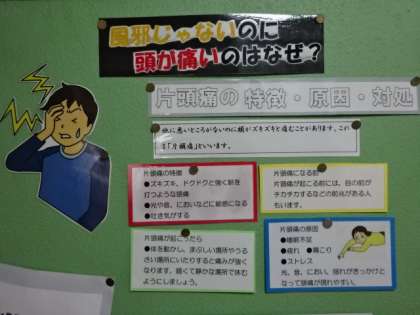 風邪じゃないのに
頭が痛いのはなぜ?
片頭痛の特徴・原因・対処
他に悪いところがないのに頭がズキズキと痛むことがあります。これ
は「片頭痛」といいます。
片頭痛の特徴
●ズキズキ、ドクドクと強く脈を
打つような頭痛
●光や音、においなどに敏感になる
●吐き気がする
片頭痛になる前
片頭痛が起こる前には、目の前が
チカチカするなどの前兆がある人
もいます。
片頭痛が起こったら
●体を動かし、まぶしい場所やうる
さい場所にいたりすると痛みが強く
なります。暗くて静かな場所で休む
ようにしましょう。
片頭痛の原因
●睡眠不足
●疲れ ●肩こり
●ストレス
光、音、におい、揺れがきっかけと
なって頭痛が現れやすい。